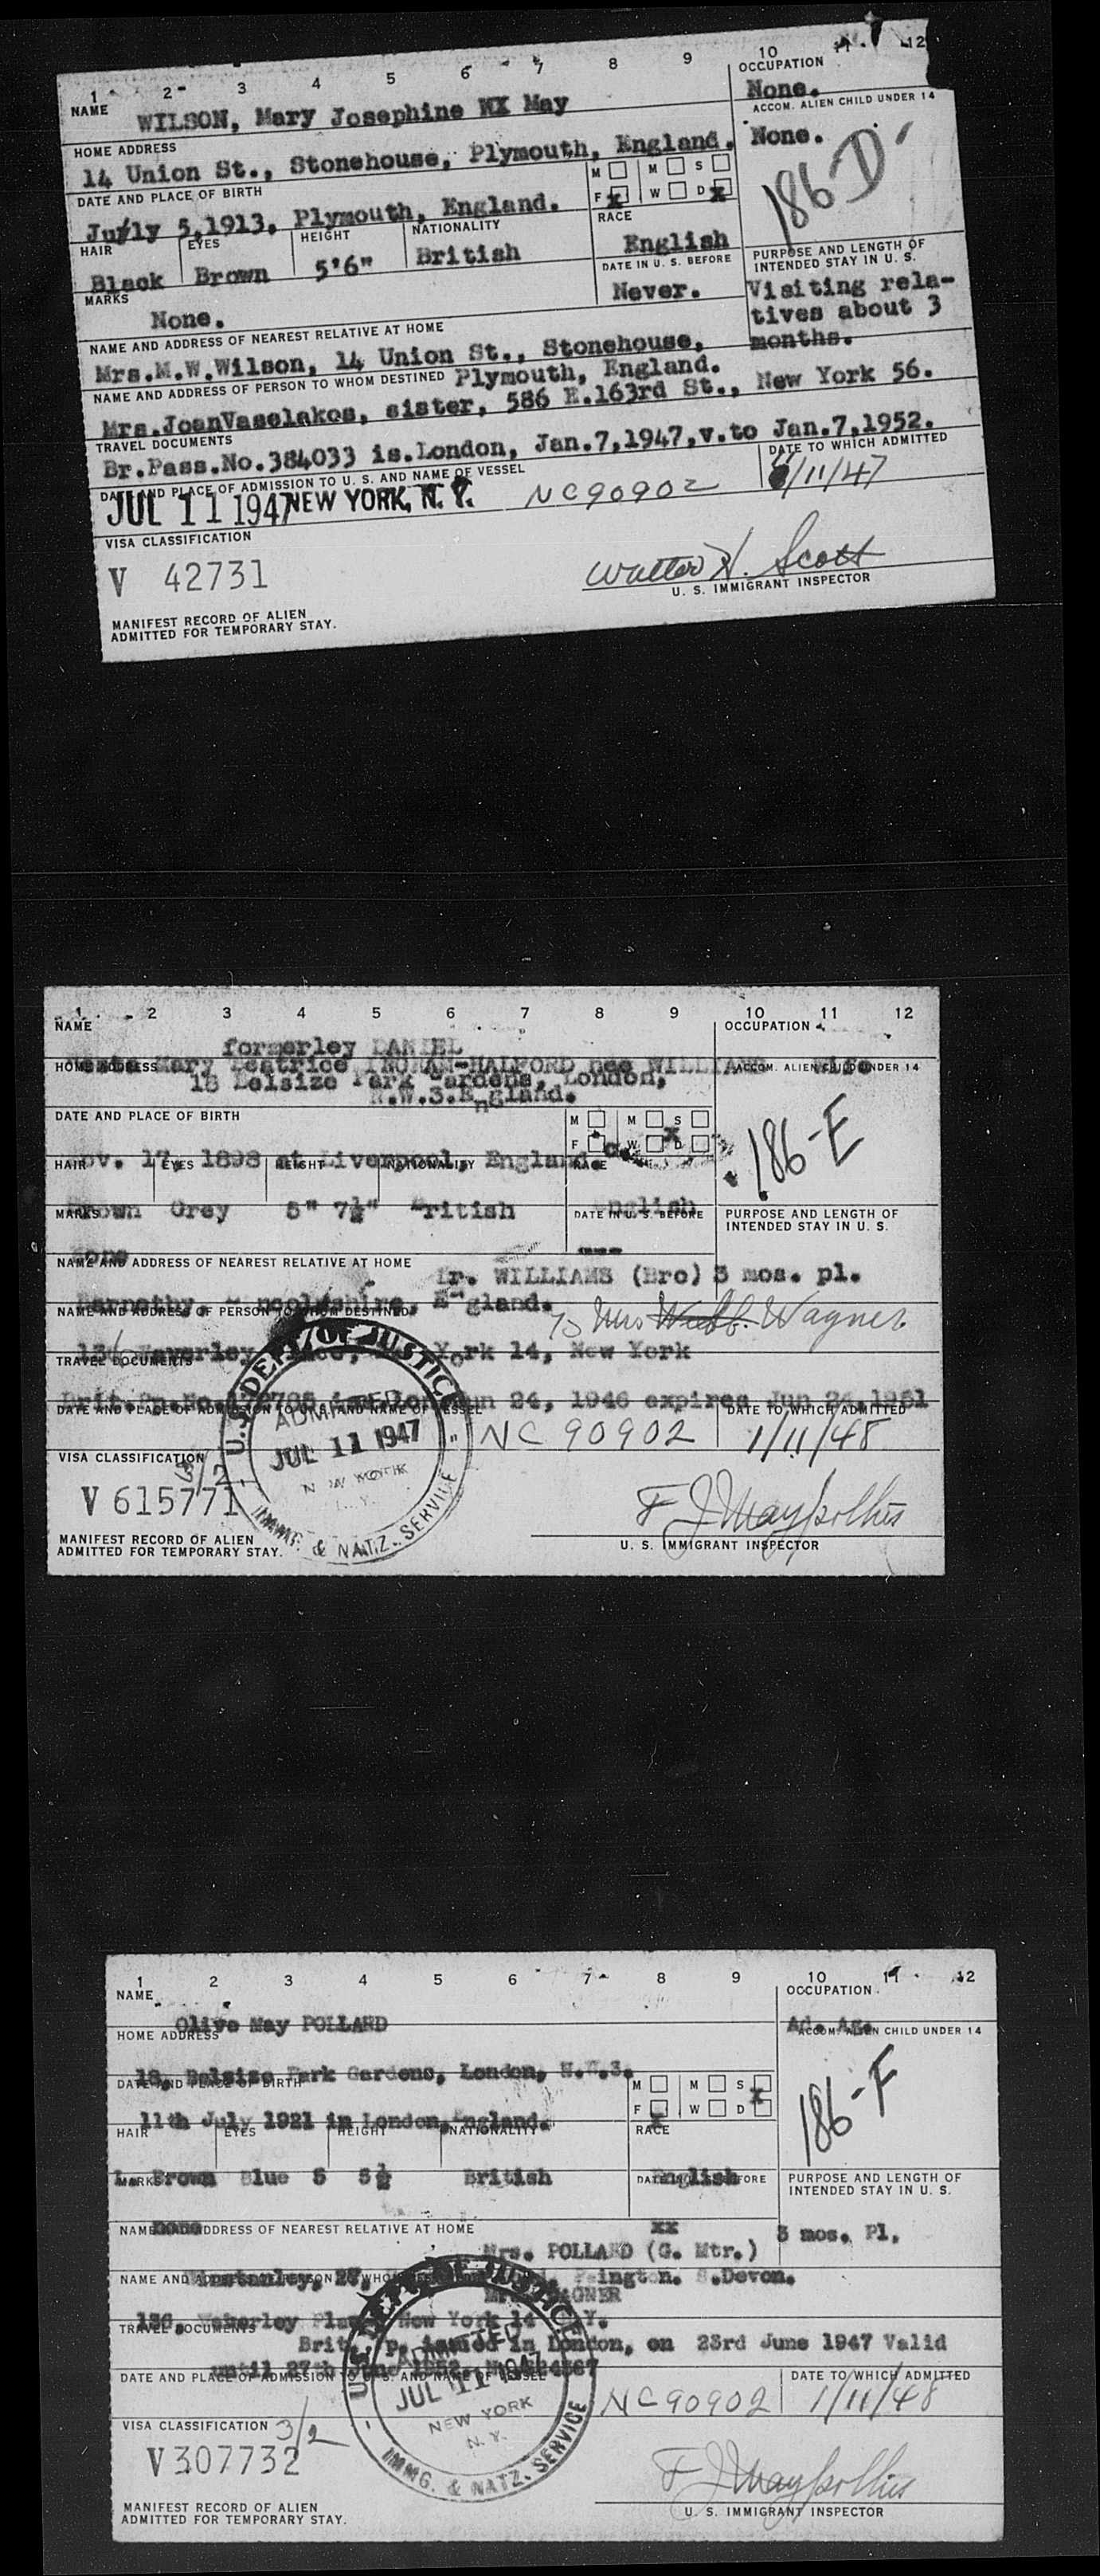 1 2 3 4 5 6 7 8 9 10 11 12
NAME
OCCUPATION
WILSON, Mary Josephine WX May
None.
HOME ADDRESS
ACCOM. ALIEN CHILD UNDER 14
14 Union St., Stonehouse, Plymouth, England.
None.
186-D
DATE AND PLACE OF BIRTH
M M S
F X W D X
July 5,1913, Plymouth, England.
HAIR EYES HEIGHT NATIONALITY RACE
Black Brown 5'6" British English
MARKS
DATE IN U. S. BEFORE
None. Never.
PURPOSE AND LENGTH OF
INTENDED STAY IN U. S.
Visiting rela-
tives about 3
months.
NAME AND ADDRESS OF NEAREST RELATIVE AT HOME
Mrs.M.W.Wilson, 14 Union St., Stonehouse,
Plymouth, England.
NAME AND ADDRESS OF PERSON TO WHOM DESTINED
Mrs.JoanVaselakos, sister, 586 E.163rd St., New York 56.
TRAVEL DOCUMENTS
Br.Pass.No.384033 is.London, Jan.7,1947,v.to Jan.7,1952.
DATE AND PLACE OF ADMISSION TO U. S. AND NAME OF VESSEL
DATE TO WHICH ADMITTED
JUL 11 1947 NEW YORK, N. Y. NC90902 /11/47
VISA CLASSIFICATION
V 42731
Walter H. Scott
U. S. IMMIGRANT INSPECTOR
MANIFEST RECORD OF ALIEN
ADMITTED FOR TEMPORARY STAY.
1 2 3 4 5 6 7 8 9 10 11 12
NAME
OCCUPATION
formerley DANIEL
HOME ADDRESS
ACCOM. ALIEN CHILD UNDER 14
Mary Beatrice INGHAM-HALFORD nee WILLIAMS Wife
18 Belsize Park Gardens, London,
N.W.3.England.
DATE AND PLACE OF BIRTH
M M S
F W D
186-E
HAIR EYES HEIGHT NATIONALITY RACE
Nov. 17, 1898 at Liverpool, England.
MARKS
DATE IN U. S. BEFORE
Brown Grey 5" 7½" British English
PURPOSE AND LENGTH OF
INTENDED STAY IN U. S.
None
NAME AND ADDRESS OF NEAREST RELATIVE AT HOME
Mr. WILLIAMS (Bro) 3 mos. pl.
England.
NAME AND ADDRESS OF PERSON TO WHOM DESTINED
To Mrs Wagner
TRAVEL DOCUMENTS
Waverley York 14, New York
Jun 24, 1946 expires Jun 24 1951
DATE AND PLACE OF ADMISSION TO U. S. AND NAME OF VESSEL
DATE TO WHICH ADMITTED
U.S. DEPT. OF JUSTICE
ADMITTED
JUL 11 1947
NEW YORK
N. Y.
IMMG. & NATZ. SERVICE
NC 90902 1/11/48
VISA CLASSIFICATION
3/2
V 615771
U. S. IMMIGRANT INSPECTOR
MANIFEST RECORD OF ALIEN
ADMITTED FOR TEMPORARY STAY.
1 2 3 4 5 6 7 8 9 10 11 12
NAME
OCCUPATION
Olive May POLLARD
HOME ADDRESS
ACCOM. ALIEN CHILD UNDER 14
18, Belsize Park Gardens, London, N.W.3.
DATE AND PLACE OF BIRTH
M M S X
F X W D
186-F
11th July 1921 in London,England.
HAIR EYES HEIGHT NATIONALITY RACE
L. Brown Blue 5 5½ British English
MARKS
DATE IN U. S. BEFORE
PURPOSE AND LENGTH OF
INTENDED STAY IN U. S.
none xx
NAME AND ADDRESS OF NEAREST RELATIVE AT HOME
3 mos. Pl.
Mrs. POLLARD (G. Mtr.)
S.Devon.
NAME AND ADDRESS OF PERSON TO WHOM DESTINED
WAGNER
136, Waverley Place New York 14 N.Y.
TRAVEL DOCUMENTS
Brit. p. issued in London, on 23rd June 1947 Valid
DATE AND PLACE OF ADMISSION TO U. S. AND NAME OF VESSEL
DATE TO WHICH ADMITTED
U.S. DEPT. OF JUSTICE
ADMITTED
JUL 11 1947
NEW YORK
N. Y.
IMMG. & NATZ. SERVICE
NC90902 1/11/48
VISA CLASSIFICATION 3/2
V 307732
U. S. IMMIGRANT INSPECTOR
MANIFEST RECORD OF ALIEN
ADMITTED FOR TEMPORARY STAY.